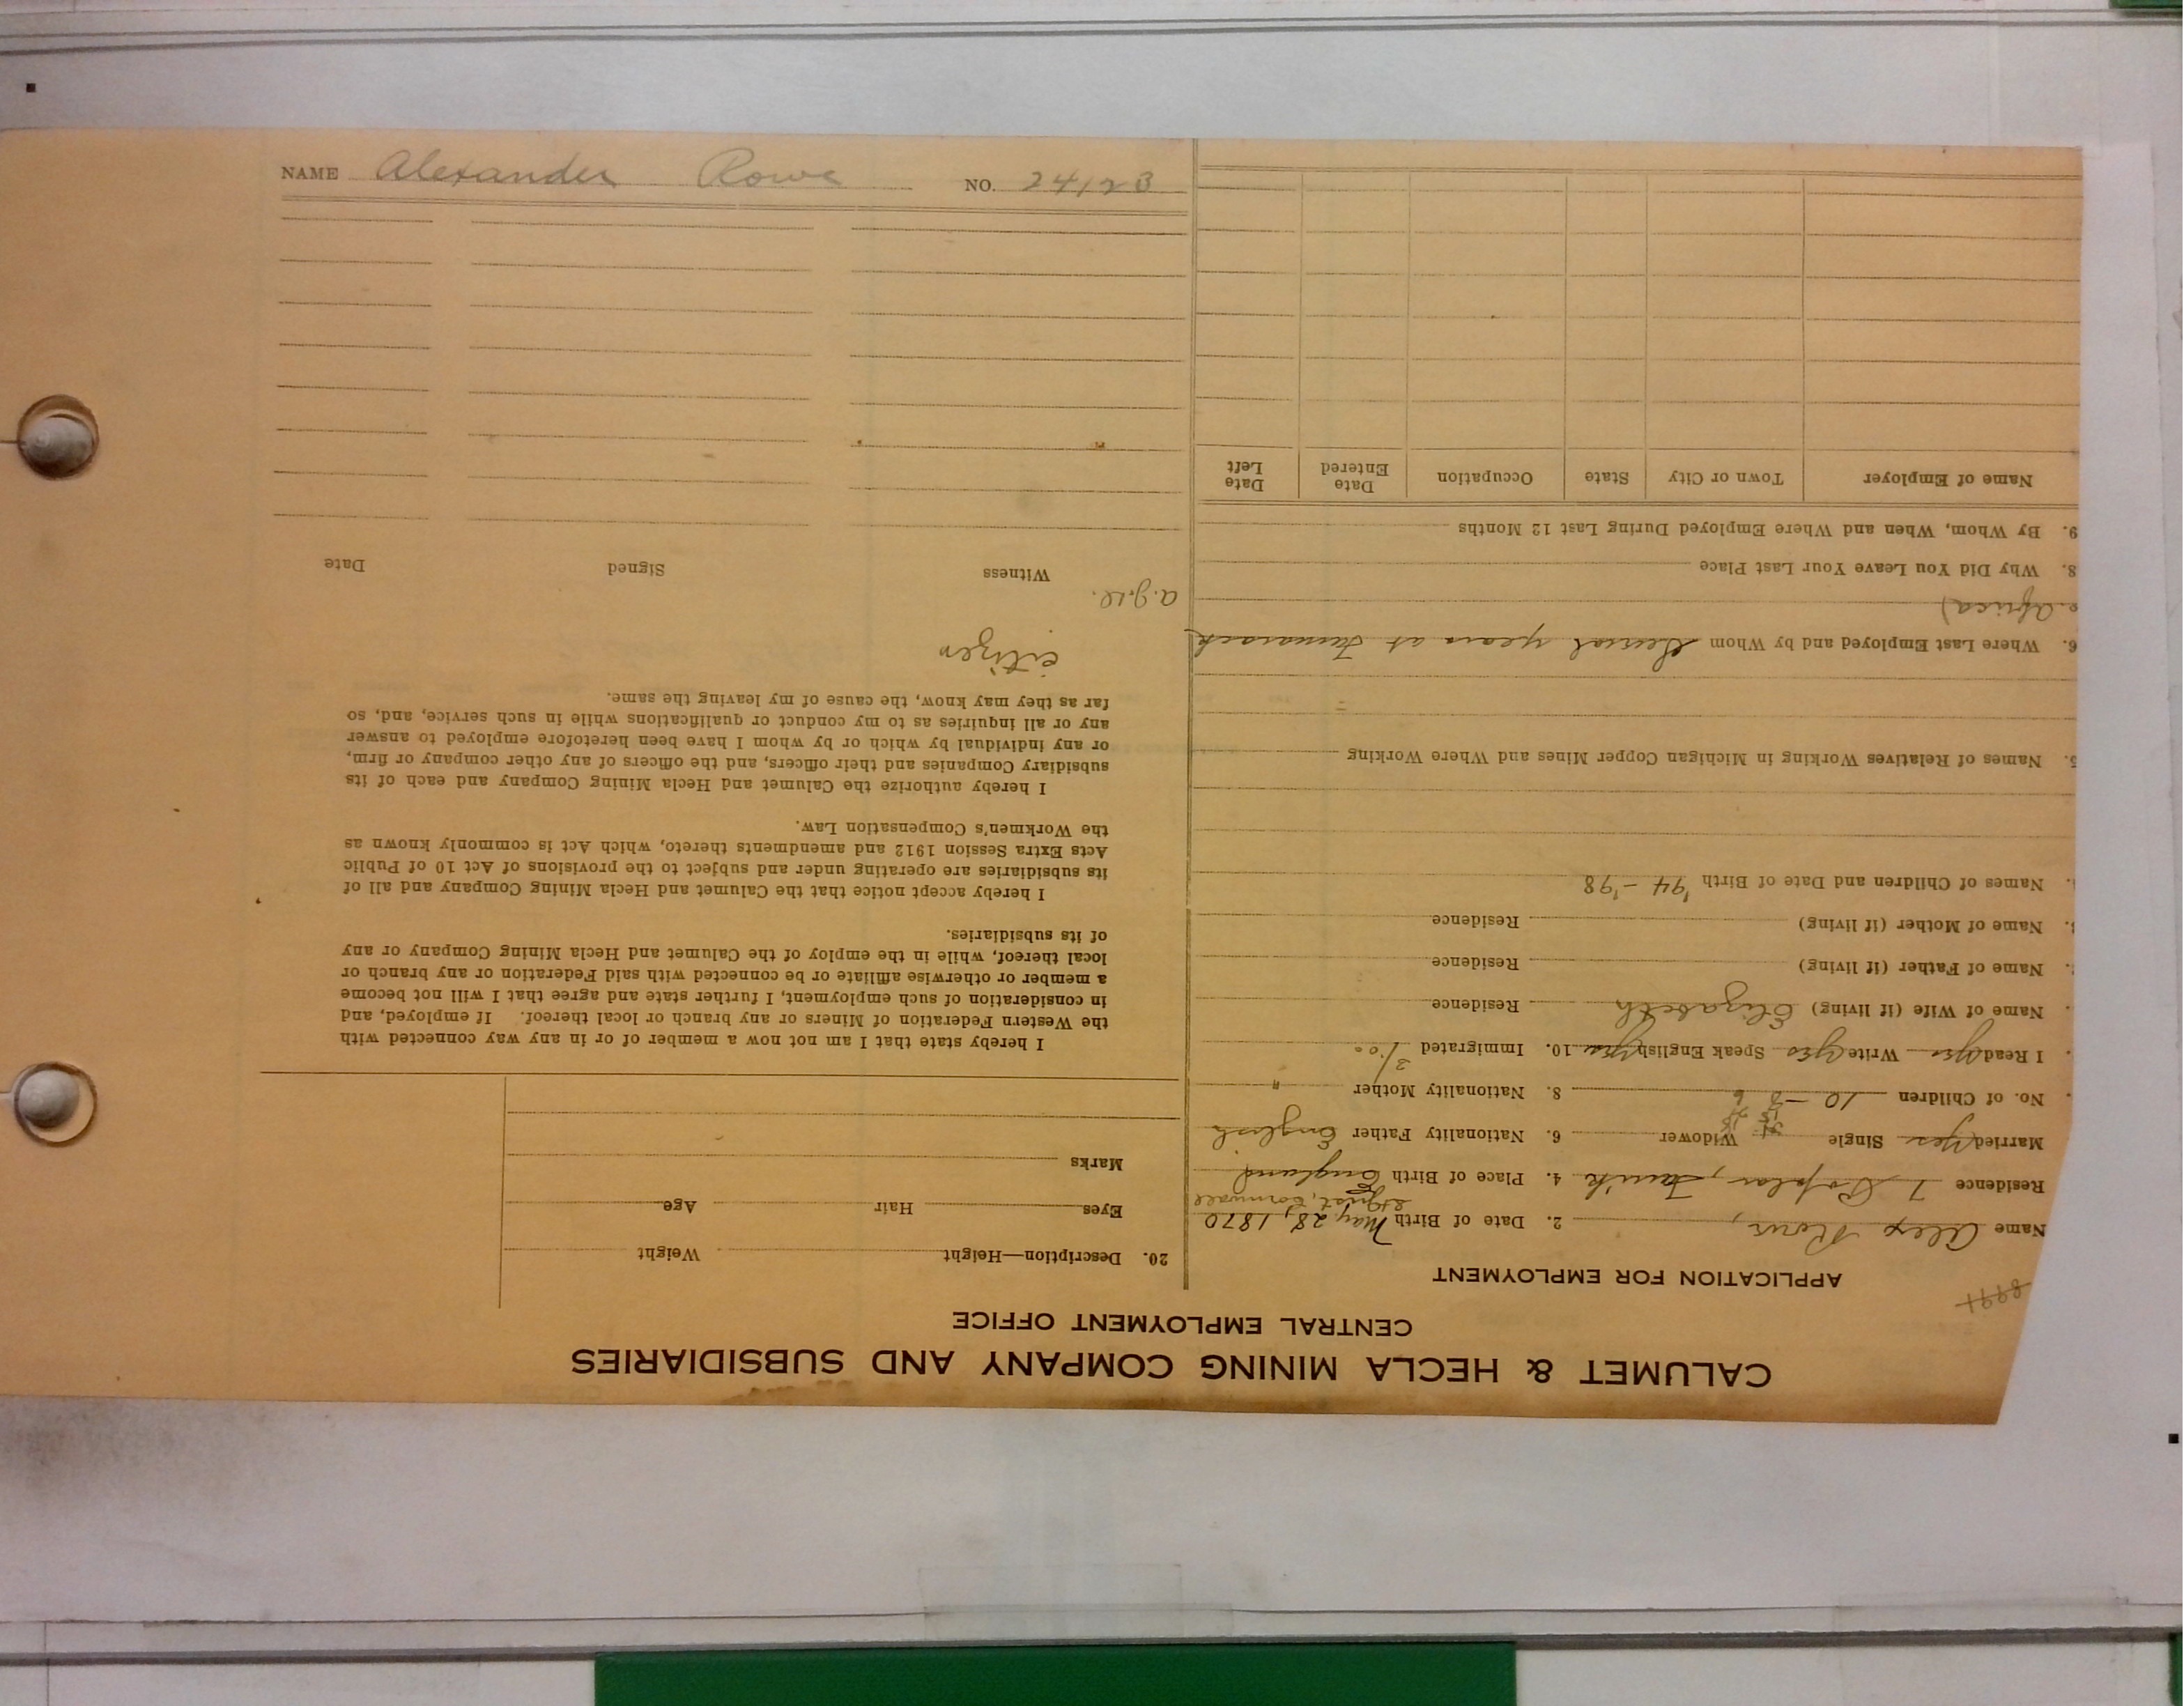 NAME Alexander Rowe NO. 24123
CALUMET & HECLA MINING COMPANY AND SUBSIDIARIES
CENTRAL EMPLOYMENT OFFICE
APPLICATION FOR EMPLOYMENT
Name Alex Rowe, 2. Date of Birth May 28, 1870
Cornwall
Residence 7 Poplar, 4. Place of Birth England
Married yes Single Widower 6. Nationality Father English
No. of Children 10 - 8. Nationality Mother "
I Read yes Write yes Speak English yes 10. Immigrated 3/'00
Name of Wife (if living) Elizabeth Residence
Name of Father (if living) Residence
Name of Mother (if living) Residence
Names of Children and Date of Birth '94 - '98
5. Names of Relatives Working in Michigan Copper Mines and Where Working
6. Where Last Employed and by Whom Several years at Tamarack
Africa)
8. Why Did You Leave Your Last Place
9. By Whom, When and Where Employed During Last 12 Months
Name of Employer Town or City State Occupation Date Entered Date Left
20. Description—Height Weight
Eyes Hair Age
Marks
I hereby state that I am not now a member of or in any way connected with
the Western Federation of Miners or any branch or local thereof. If employed, and
in consideration of such employment, I further state and agree that I will not become
a member or otherwise affiliate or be connected with said Federation or any branch or
local thereof, while in the employ of the Calumet and Hecla Mining Company or any
of its subsidiaries.
I hereby accept notice that the Calumet and Hecla Mining Company and all of
its subsidiaries are operating under and subject to the provisions of Act 10 of Public
Acts Extra Session 1912 and amendments thereto, which Act is commonly known as
the Workmen's Compensation Law.
I hereby authorize the Calumet and Hecla Mining Company and each of its
subsidiary Companies and their officers, and the officers of any other company or firm,
or any individual by which or by whom I have been heretofore employed to answer
any or all inquiries as to my conduct or qualifications while in such service, and, so
far as they may know, the cause of my leaving the same.
citizen
Witness Signed Date